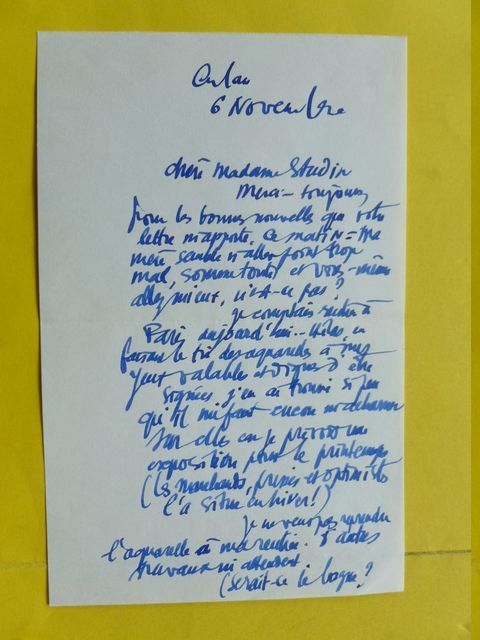 Culan
6 Novembre
Chère Madame Studin
Merci - toujours
pour les bonnes nouvelles que votre
lettre m'apporte. Ce matin - Ma
mère semble n'aller point trop
mal, somme toute et vous-même
allez mieux, n'est-ce pas ?
Je comptais rentrer à
Paris aujourd'hui... Hélas, en
faisant le tri des aquarelles à mes
yeux valables et dignes d'être
signées, j'en ai trouvé si peu
qu'il me faut encore m'acharner
sur elles car je prévois une
exposition pour le printemps
(les marchands, pressés et optimistes
l'a situe en hiver !)
Je ne veux pas reprendre
l'aquarelle à ma rentrée. D'autres
travaux m'attendent.
(Serait-ce le bagne ?